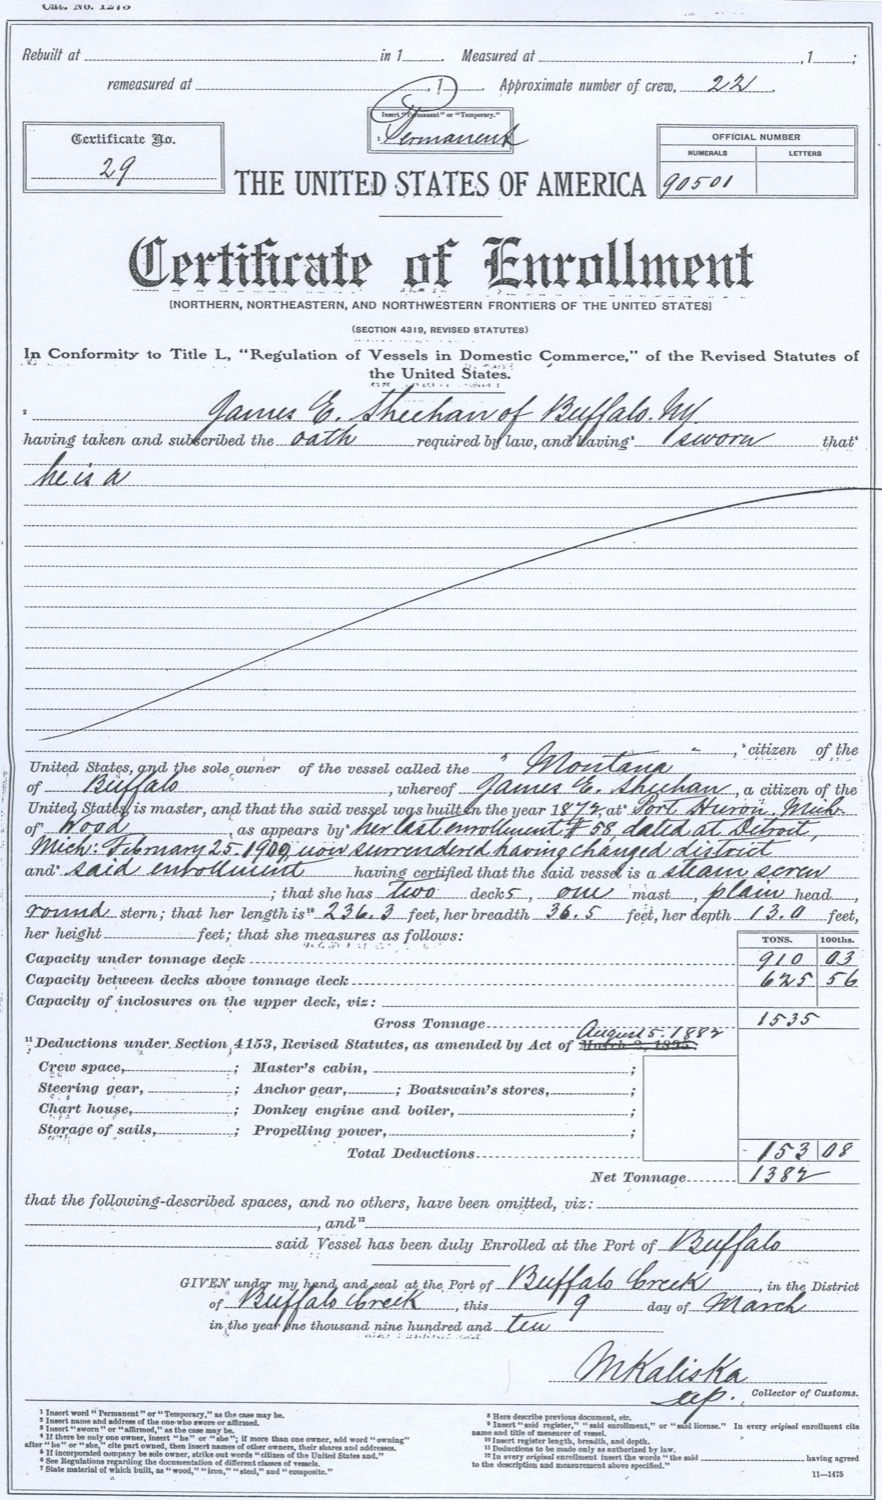 Cat. No. 1275
Rebuilt at in 1 . Measured at , 1 ;
remeasured at , 1 . Approximate number of crew, 22 .
Insert "Permanent" or "Temporary."
1 Permanent
Certificate No.
29
OFFICIAL NUMBER
NUMERALS LETTERS
90501
THE UNITED STATES OF AMERICA
Certificate of Enrollment
[NORTHERN, NORTHEASTERN, AND NORTHWESTERN FRONTIERS OF THE UNITED STATES]
(SECTION 4319, REVISED STATUTES)
In Conformity to Title L, "Regulation of Vessels in Domestic Commerce," of the Revised Statutes of
the United States.
2 James E. Sheehan of Buffalo. NY.
having taken and subscribed the oath required by law, and having 3 sworn that 4
he is a
, 5 citizen of the
United States, and the sole owner of the vessel called the 6 Montana
of Buffalo , whereof James E. Sheehan , a citizen of the
United States, is master, and that the said vessel was built in the year 1872, at Port Huron. Mich.
of 7 wood , as appears by 8 her last enrollment # 58 dated at Detroit,
Mich: February 25. 1909, now surrendered having changed district
and 9 said enrollment having certified that the said vessel is a steam screw
; that she has two decks, one mast, plain head,
round stern; that her length is 10 236.3 feet, her breadth 36.5 feet, her depth 13.0 feet,
her height feet; that she measures as follows:
TONS. 100ths.
Capacity under tonnage deck 910 03
Capacity between decks above tonnage deck 625 56
Capacity of inclosures on the upper deck, viz:
Gross Tonnage 1535
August 5. 1882
11 Deductions under Section 4153, Revised Statutes, as amended by Act of March 2, 1895:
Crew space, ; Master's cabin, ;
Steering gear, ; Anchor gear, ; Boatswain's stores, ;
Chart house, ; Donkey engine and boiler, ;
Storage of sails, ; Propelling power, ;
Total Deductions 153 08
Net Tonnage 1382
that the following-described spaces, and no others, have been omitted, viz:
, and 12
said Vessel has been duly Enrolled at the Port of Buffalo
GIVEN under my hand and seal at the Port of Buffalo Creek , in the District
of Buffalo Creek , this 9 day of March
in the year one thousand nine hundred and ten
M Kaliska
Dep. Collector of Customs.
1 Insert word "Permanent" or "Temporary," as the case may be.
2 Insert name and address of the one who swore or affirmed.
3 Insert "sworn" or "affirmed," as the case may be.
4 If there be only one owner, insert "he" or "she"; if more than one owner, add word "owning"
after "he" or "she," cite part owned, then insert names of other owners, their shares and addresses.
5 If incorporated company be sole owner, strike out words "citizen of the United States and."
6 See Regulations regarding the documentation of different classes of vessels.
7 State material of which built, as "wood," "iron," "steel," and "composite."
8 Here describe previous document, etc.
9 Insert "said register," "said enrollment," or "said license." In every original enrollment cite
name and title of measurer of vessel.
10 Insert register length, breadth, and depth.
11 Deductions to be made only as authorized by law.
12 In every original enrollment insert the words "the said having agreed
to the description and measurement above specified."
11—1475